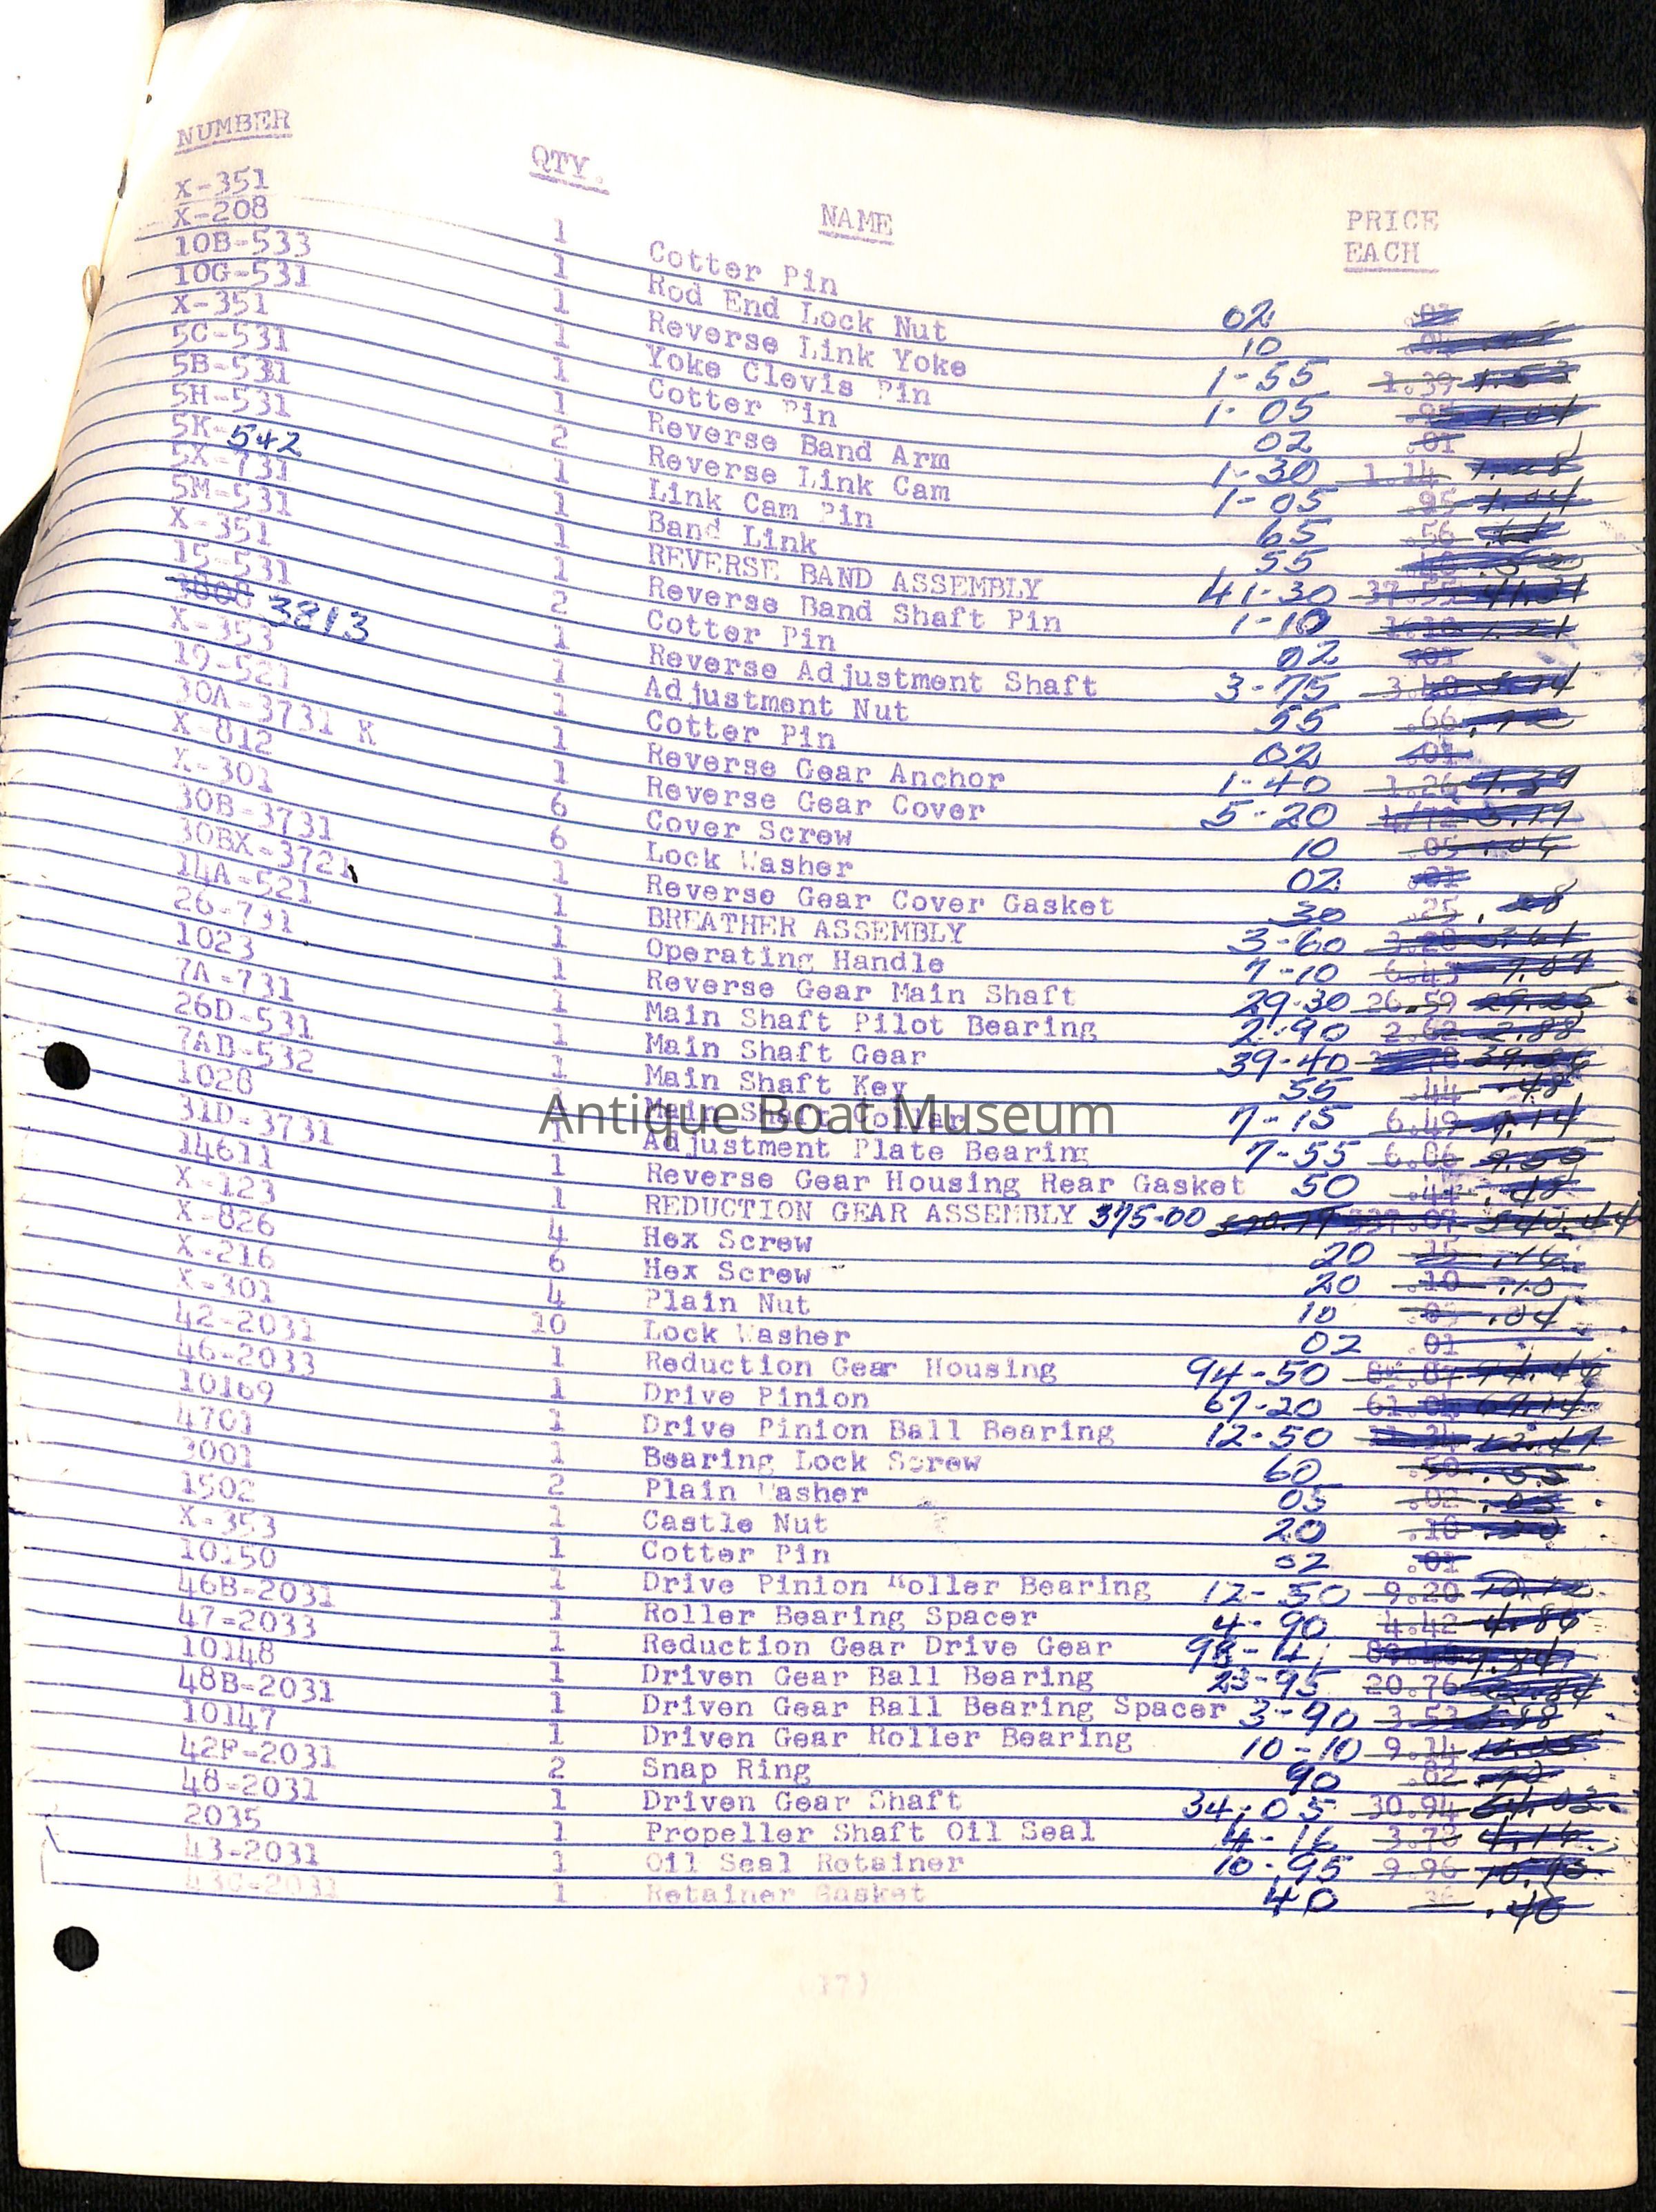 NUMBER QTY. NAME PRICE EACH
X-351 1 Cotter Pin 02
X-208 1 Rod End Lock Nut 10
10B-533 1 Reverse Link Yoke 1-55 1.39 1.53
10G-531 1 Yoke Clevis Pin 1-05 .95 1.04
X-351 1 Cotter Pin 02 .01
5C-531 2 Reverse Band Arm 1-30 1.14
5B-531 1 Reverse Link Cam 1-05 .95 1.04
5H-531 1 Link Cam Pin 65 .56
5K-542 1 Band Link 55
5X-731 1 REVERSE BAND ASSEMBLY 41-30 37.55 41.31
5M-531 2 Reverse Band Shaft Pin 1-10 1.10 1.21
X-351 1 Cotter Pin 02 .01
15-531 1 Reverse Adjustment Shaft 3-75 3.40 3.74
3808 3813 1 Adjustment Nut 55 .66
X-353 1 Cotter Pin 02 .01
19-521 1 Reverse Gear Anchor 1-40 1.26 1.39
30A-3731 K 1 Reverse Gear Cover 5-20 4.72 5.19
X-812 6 Cover Screw 10 .05
X-301 6 Lock Washer 02 .01
30B-3731 1 Reverse Gear Cover Gasket 30 .25 .28
30BX-3721 1 BREATHER ASSEMBLY 3-60 3.28 3.61
14A-521 1 Operating Handle 7-10 6.43 7.07
26-731 1 Reverse Gear Main Shaft 29-30 26.59 29.25
1023 1 Main Shaft Pilot Bearing 2-90 2.62 2.88
7A-731 1 Main Shaft Gear 39-40
26D-531 1 Main Shaft Key 55 .44 .48
7AB-532 1 Main Shaft Collar 7-15 6.49 7.14
1028 1 Adjustment Plate Bearing 7-55 6.86
31D-3731 1 Reverse Gear Housing Rear Gasket 50 .44 .48
14611 1 REDUCTION GEAR ASSEMBLY 375-00
X-123 4 Hex Screw 20 .15 .16
X-826 6 Hex Screw 20 .10 .10
X-216 4 Plain Nut 10 .04
X-301 10 Lock Washer 02 .01
42-2031 1 Reduction Gear Housing 94-50
46-2033 1 Drive Pinion 67-20 67.14
10169 1 Drive Pinion Ball Bearing 12-50 12.47
4701 1 Bearing Lock Screw 60 .50 .55
3001 2 Plain Washer 03 .02 .03
1502 1 Castle Nut 20 .18 .20
X-353 1 Cotter Pin 02 .01
10150 1 Drive Pinion Roller Bearing 12-50 9.20
46B-2031 1 Roller Bearing Spacer 4-90 4.42 4.86
47-2033 1 Reduction Gear Drive Gear
10148 1 Driven Gear Ball Bearing 23-95 20.76
48B-2031 1 Driven Gear Ball Bearing Spacer 3-90 3.53 3.88
10147 1 Driven Gear Roller Bearing 10-10 9.14 10.05
42F-2031 2 Snap Ring 90 .82 .90
48-2031 1 Driven Gear Shaft 34-05 30.94
2035 1 Propeller Shaft Oil Seal 4-16 3.78 4.16
43-2031 1 Oil Seal Retainer 10-95 9.96 10.95
43G-2031 1 Retainer Gasket 40 .36 .40
(37)
Antique Boat Museum